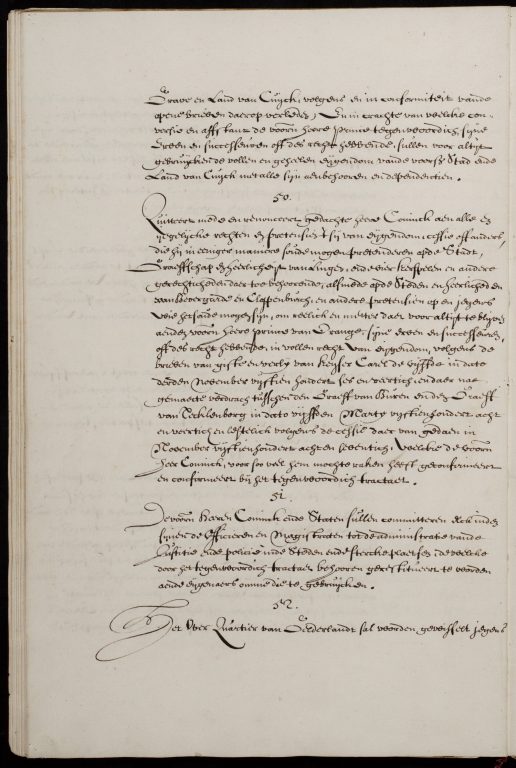 Grave en Land van Cuyck, volgens en in conformiteit vande
opene brieven daerop verleden, En in crachte van welcke con-
versie en affstant de voorn heere Prince tegenwoordich, syne
Erven en successeuren off des recht hebbende, sullen voor altyt
gebruycken de vollen en geheelen eygendom vande voorsz Stad ende
Land van Cuyck met alle sijn aenbehooren en dependentien.
50.
Quitteert mede en renunceert gedachte heere Coninck aen alle en
ygelycke rechten en pretensie, t sij van eygendom, cessie oft anders,
die hij in eeniger maniere soude mogen pretenderen op de Stadt,
Graeffschap en heerlicheyt van Lingen, ende vier kerspelen en andere
gerechticheden daer toe behoorende, alsmede op de Steden en heerlicheden
van Bevergunde en Cloppenburch, en andere pretensien op en jegens
wie het soude mogen sijn, om reelick en immers daer voor altyt te blijven
aenden voorn heere Prince van Orange, syne erven en successeuren,
off des recht hebbende, in vollen recht van eygendom, volgens de
brieven van giffte en verly van Keyser Carel de vyffde in dato
derden November vyftien hondert ses en veertich, en daer nae
gemaecte verdrach tusschen den Graeff van Buren en den Graeff
van Tecklenborg in dato vyffden Marty vyftienhondert acht
en veertich en lestelick volgens de cessie daer van gedaen in
November vyftienhondert acht en seventich, welcke de voorn
heer Coninck, voor soo veel hem mochte raken heeft geconfirmeert
en confirmeert bij het tegenwoordich tractaet.
51.
De voorn Heeren Coninck ende Staten sullen committeren elck inden
sijnen de Officieren en Magistraten tot de administratie vande
Justitie ende policie inde Steden ende stercke plaetsen, de welcke
door het tegenwoordich tractaet behooren gerestitueert te worden
aende eygenaers omme die te gebruycken.
52.
Het Over Quartier van Gelderlandt sal worden gewisselt jegens